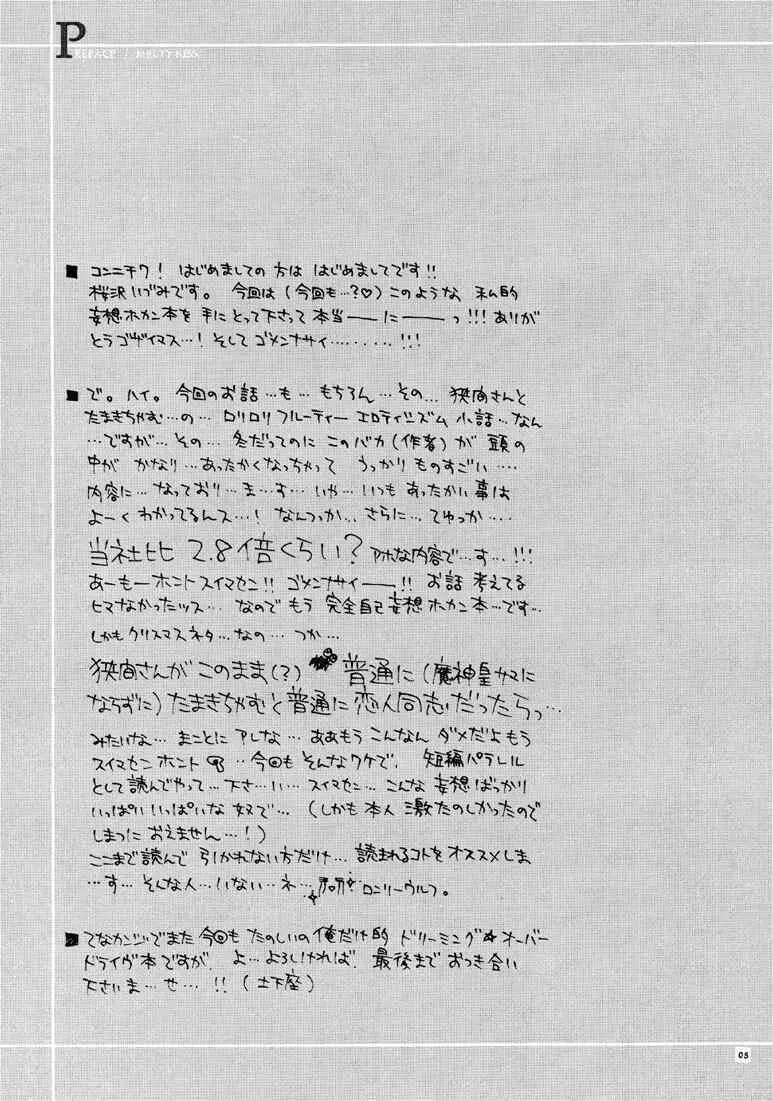 PREFACE / MELTY KISS
■ コンニチワ! はじめましての方は はじめましてです!!
桜沢いづみです。 今回は(今回も…?♡)このような、私的
妄想ホカン本を 手にとって下さって 本当――に――っ!!! ありが
とうゴザイマス…! そして ゴメンナサイ………!!!
■ で。ハイ。今回のお話…も…もちろん…その… 狭間さんと
たまきちゃむ…の… ロリロリ フルーティー エロティシズム 小話…なん
…ですが… その… 冬だってのに このバカ(作者)が 頭の
中が かなり…あったかくなっちゃって うっかり ものすごい…
内容に…なっており…ま…す… いや… いつも あったかい 事は
よーく わかってるんス…! なんつっか… さらに… てゆっか…
当社比 2.8倍くらい? アホな内容で…す…!!!
あーもーホント スイマセン!! ゴメンナサイ――!! お話 考えてる
ヒマなかったッス… なので もう 完全自己妄想ホカン本…です…
しかもクリスマスネタ…なの… つか…
狭間さんが このまま(?) 普通に(魔神皇サマに
ならずに)たまきちゃむと普通に 恋人同志だったらっ…
みたいな… まことに アレな… ああもう こんなん ダメだよ もう
スイマセン ホント … 今回も そんなワケで、 短編パラレル
として 読んでやって… 下さ…い… スイマセン… こんな 妄想ばっかり
いっぱい いっぱいな 奴で… (しかも 本人 激たのしかったので
しまつに おえません…!)
ここまで 読んで 引かれない方だけ… 読まれるコトを オススメしま
…す… そんな人…いない…ネ… ロンリーウルフ。
■ てなカンジでまた 今回も たのしいの俺だけ的 ドリーミング☆オーバー
ドライヴ本ですが、 よ…よろしければ、 最後まで おつき合い
下さいま…せ…!! (土下座)
05